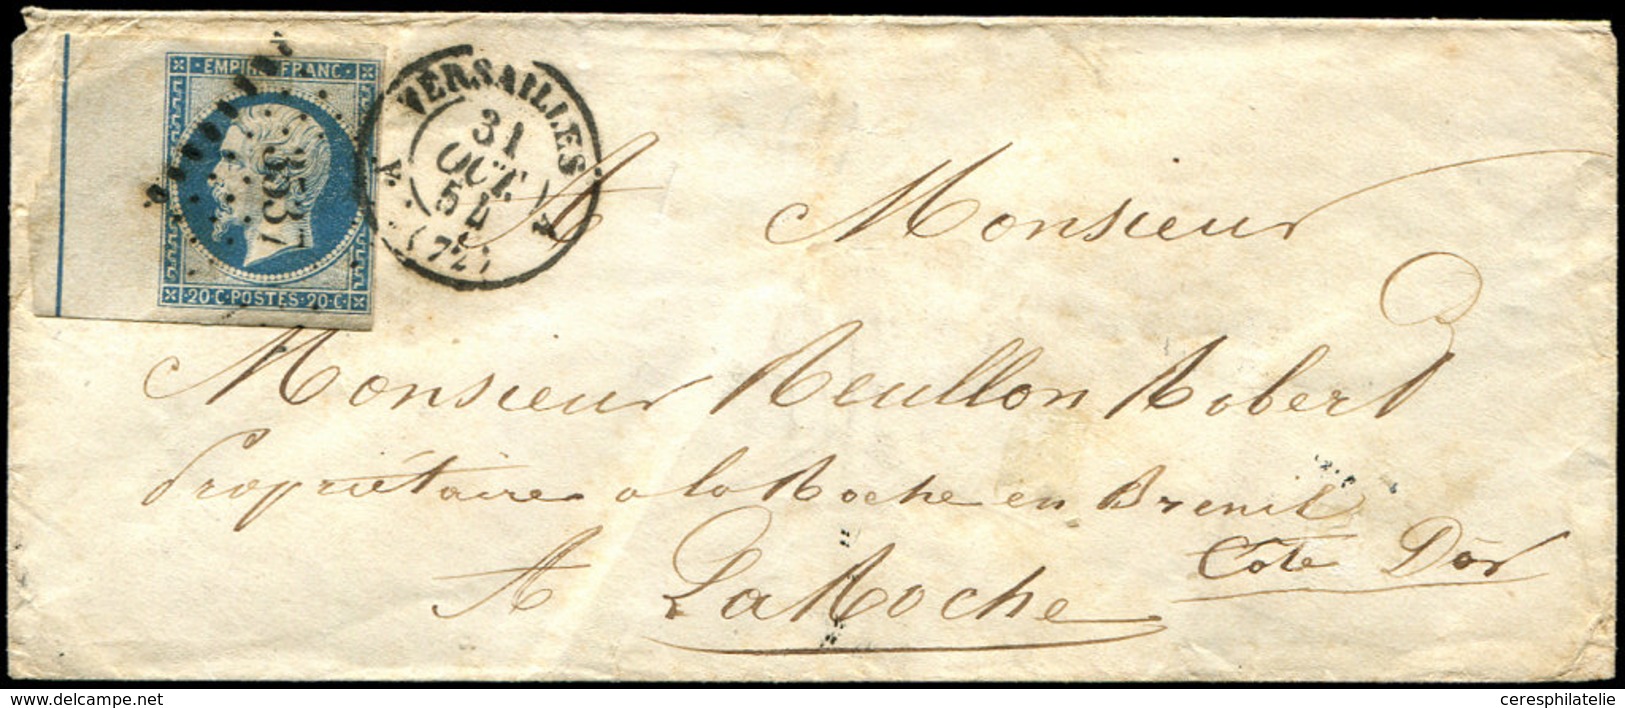 EMPIRE FRANC
3537
20·C·POSTES·20·C·
VERSAILLES
4E.
31
OCT.
54
(72)
A Monsieur
Monsieur Reullon Robert
Propriétaire a la Roche en Brenil
Cote Dor
A LaRoche
ceresphilatelie